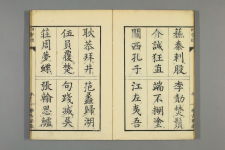 蘇秦刺股 李勣焚鬚
介誠狂直 端不糊塗
關西孔子 江左夷吾
耿恭拜井 范蠡歸湖
伍員覆楚 句踐滅吳
莊周夢蝶 張翰思鱸